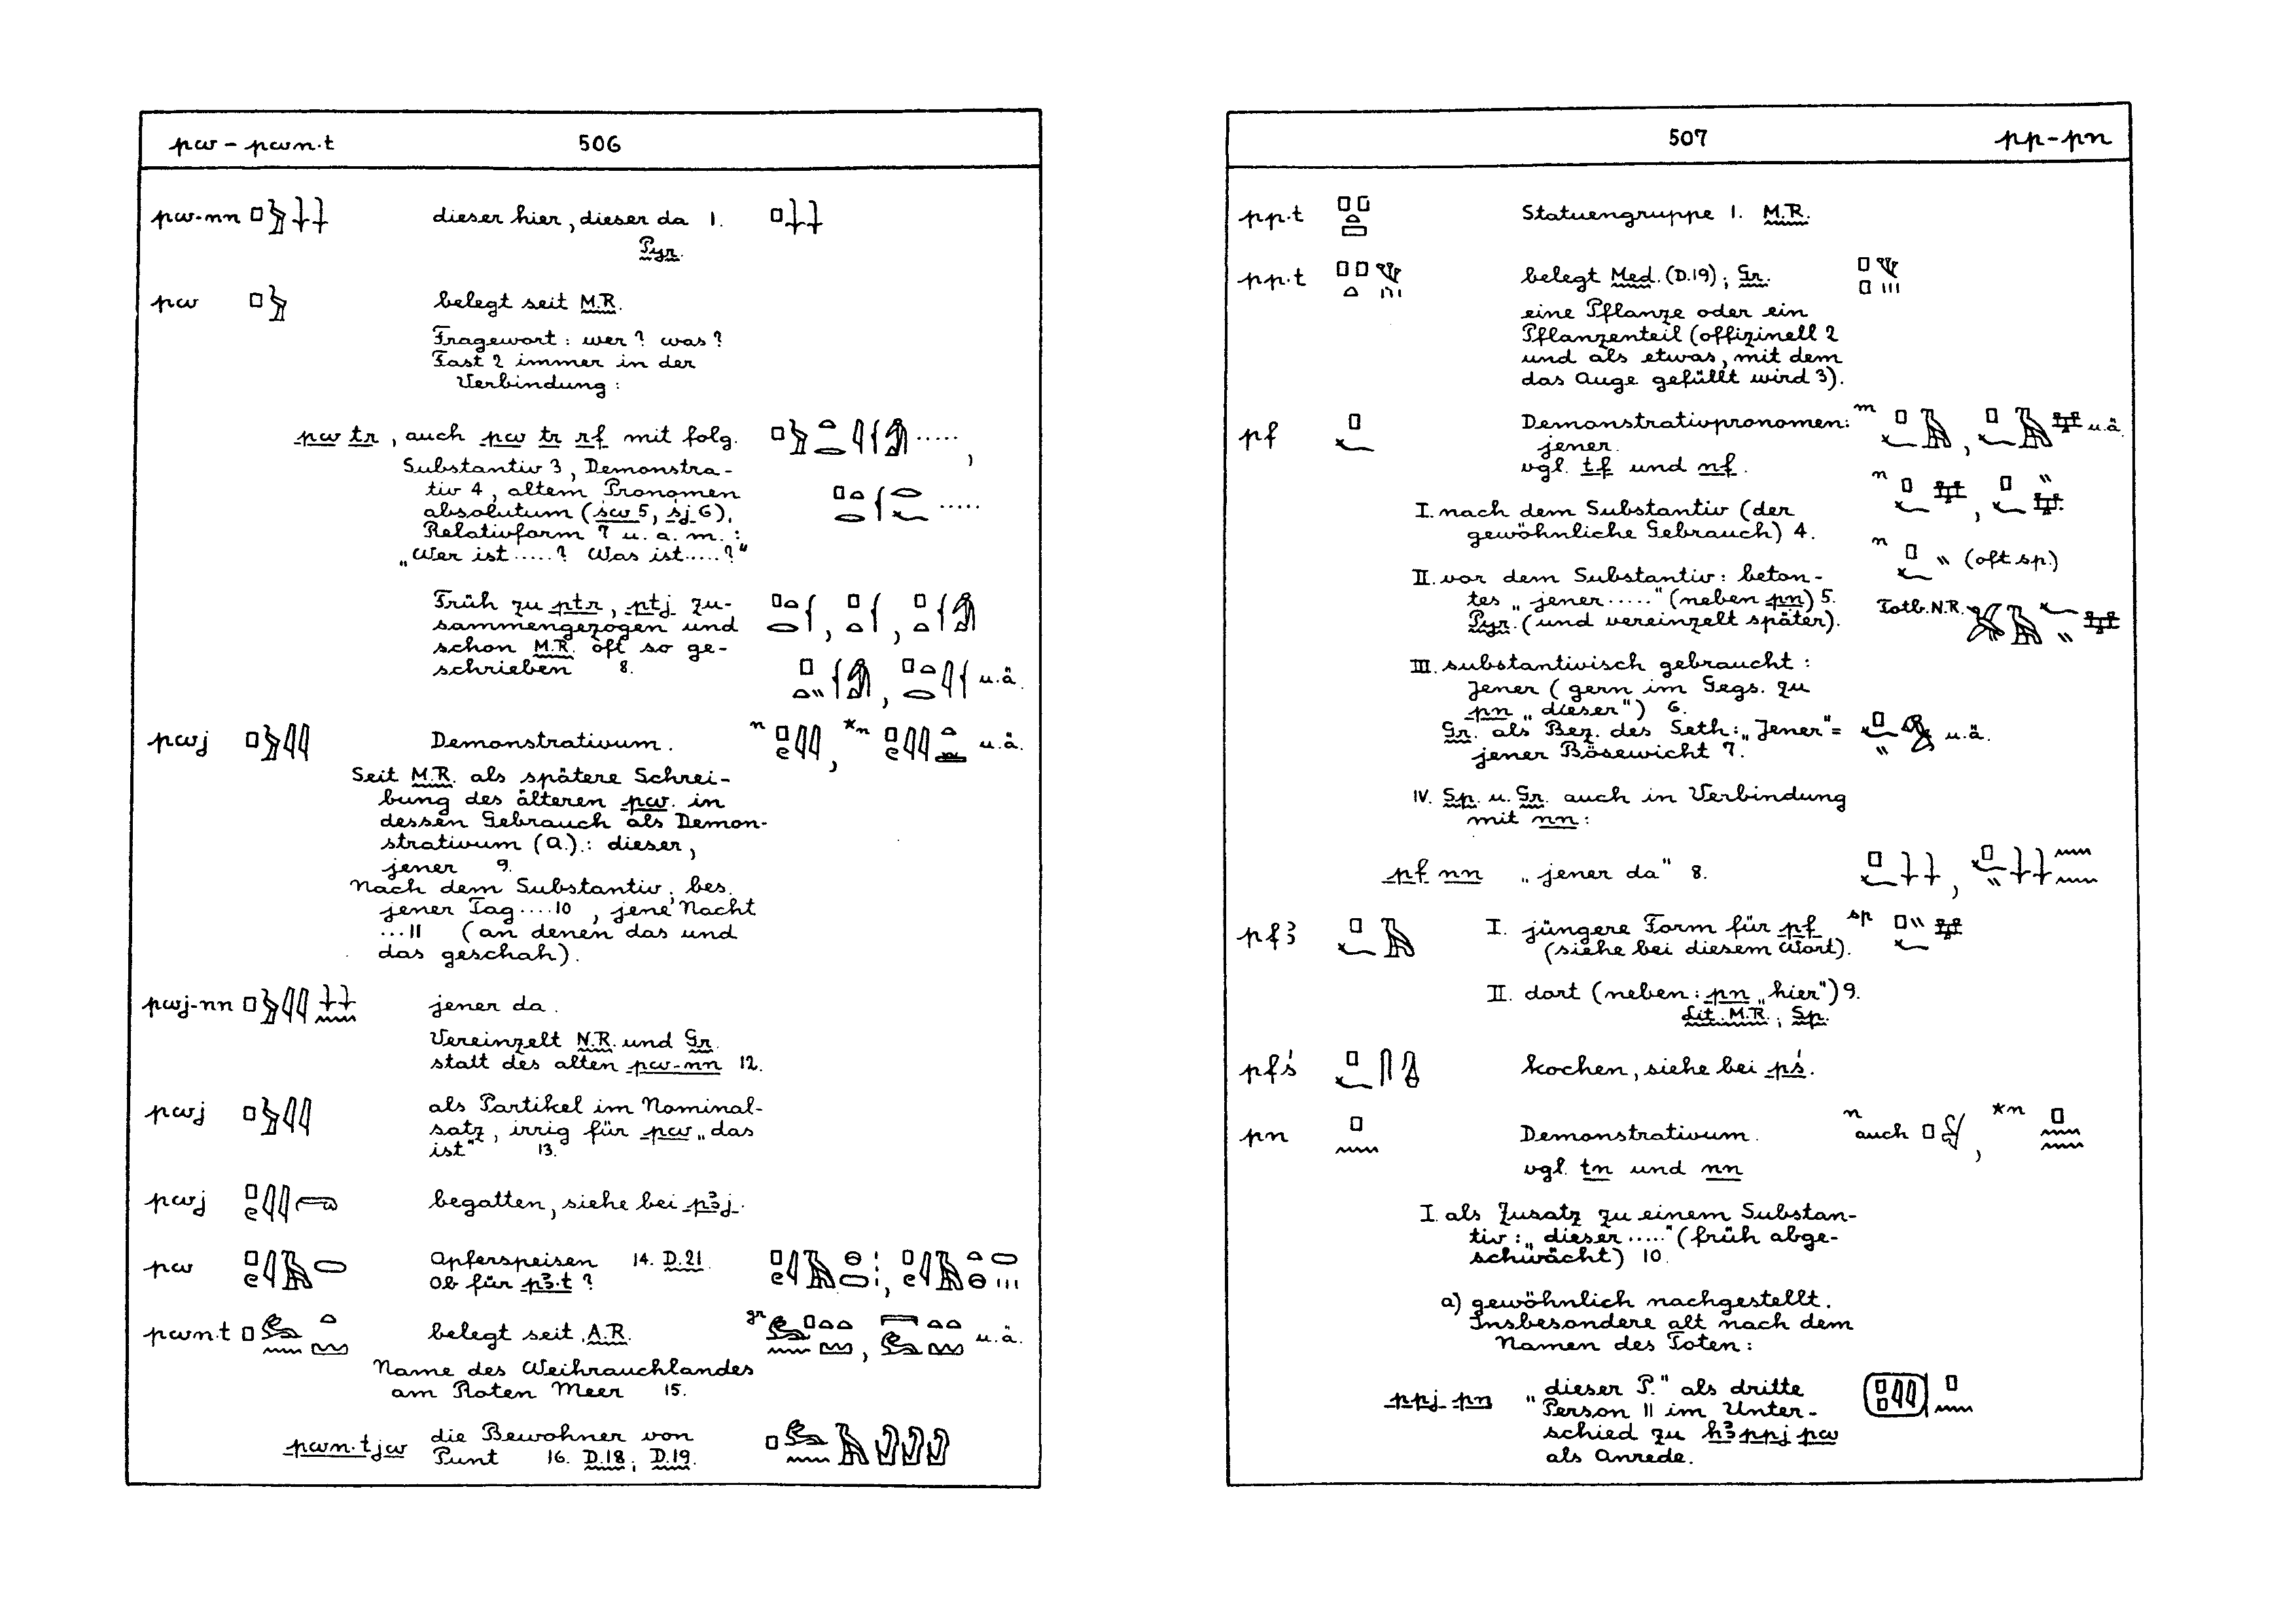 pw – pwn.t 506
pw-nn dieser hier, dieser da 1.
Pyr.
pw belegt seit M.R.
Fragewort : wer ? was ?
Fast 2 immer in der
Verbindung :
pw tr , auch pw tr rf mit folg. ..... ,
Substantiv 3 , Demonstra-
tiv 4 , altem Pronomen
absolutum (św 5, śj 6), .....
Relativform 7 u. a. m. :
„Wer ist .....? Was ist.....?"
Früh zu ptr , ptj zu-
sammengezogen und
schon M.R. oft so ge-
schrieben 8. u.ä.
pwj Demonstrativum. n , *n u.ä.
Seit M.R. als spätere Schrei-
bung des älteren pw. in
dessen Gebrauch als Demon-
strativum (a.) : dieser ,
jener 9.
Nach dem Substantiv, bes.
jener Tag....10 , jene Nacht
...11 (an denen das und
das geschah).
pwj-nn jener da .
Vereinzelt N.R. und Gr.
statt des alten pw-nn 12.
pwj als Partikel im Nominal-
satz , irrig für pw „das
ist" 13.
pwj begatten, siehe bei pꜣj.
pw Opferspeisen 14. D.21.
Ob für pꜣ.t ?
pwn.t belegt seit A.R. gr , u.ä.
Name des Weihrauchlandes
am Roten Meer 15.
pwn.tjw die Bewohner von
Punt 16. D.18 ; D.19.
507 pp-pn
pp.t Statuengruppe 1. M.R.
pp.t belegt Med. (D.19) ; Gr.
eine Pflanze oder ein
Pflanzenteil (offizinell 2
und als etwas, mit dem
das Auge gefüllt wird 3).
pf Demonstrativpronomen: m , u.ä.
jener.
vgl. tf und nf.
n ,
I. nach dem Substantiv (der
gewöhnliche Gebrauch) 4.
n (oft sp.)
II. vor dem Substantiv : beton-
tes „jener ....." (neben pn) 5.
Pyr. (und vereinzelt später). Totb. N.R.
III. substantivisch gebraucht :
Jener (gern im Gegs. zu
pn „dieser") 6.
Gr. als Bez. des Seth: „Jener" = u.ä.
jener Bösewicht 7.
IV. Sp. u. Gr. auch in Verbindung
mit nn :
pf nn „jener da" 8. ,
pfꜣ I. jüngere Form für pf sp
(siehe bei diesem Wort).
II. dort (neben : pn „hier") 9.
Lit. M.R. ; Sp.
pfś kochen, siehe bei pś.
pn Demonstrativum. n auch , *n
vgl. tn und nn
I. als Zusatz zu einem Substan-
tiv : „dieser ....." (früh abge-
schwächt) 10.
a) gewöhnlich nachgestellt.
Insbesondere alt nach dem
Namen des Toten :
ppj pn „dieser P." als dritte
Person 11 im Unter-
schied zu hꜣ ppj pw
als Anrede.